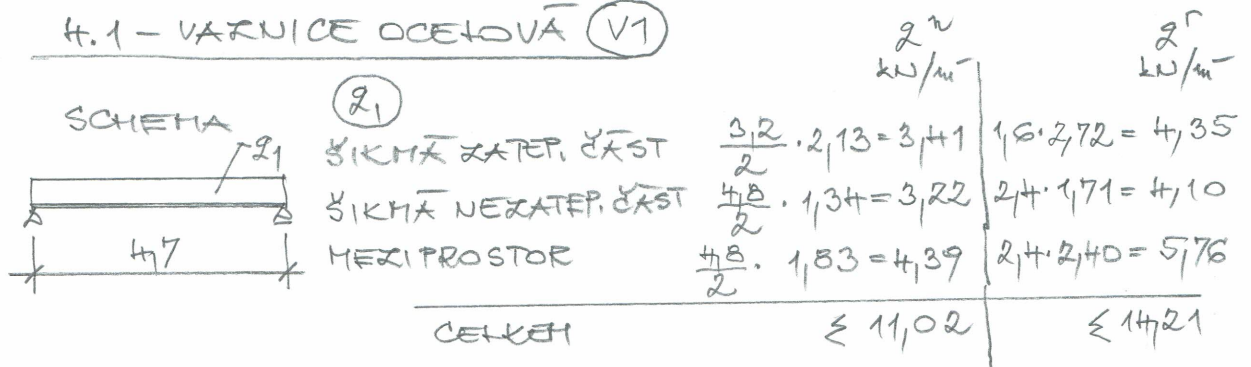 4.1 - VAZNICE OCELOVÁ V1
q^n q^r
kN/m' kN/m'
SCHEMA q1
q1
ŠIKMÁ ZATEP. ČÁST 3,2/2 · 2,13 = 3,41 1,6 · 2,72 = 4,35
ŠIKMÁ NEZATEP. ČÁST 4,8/2 · 1,34 = 3,22 2,4 · 1,71 = 4,10
4,7 MEZIPROSTOR 4,8/2 · 1,83 = 4,39 2,4 · 2,40 = 5,76
CELKEM Σ 11,02 Σ 14,21